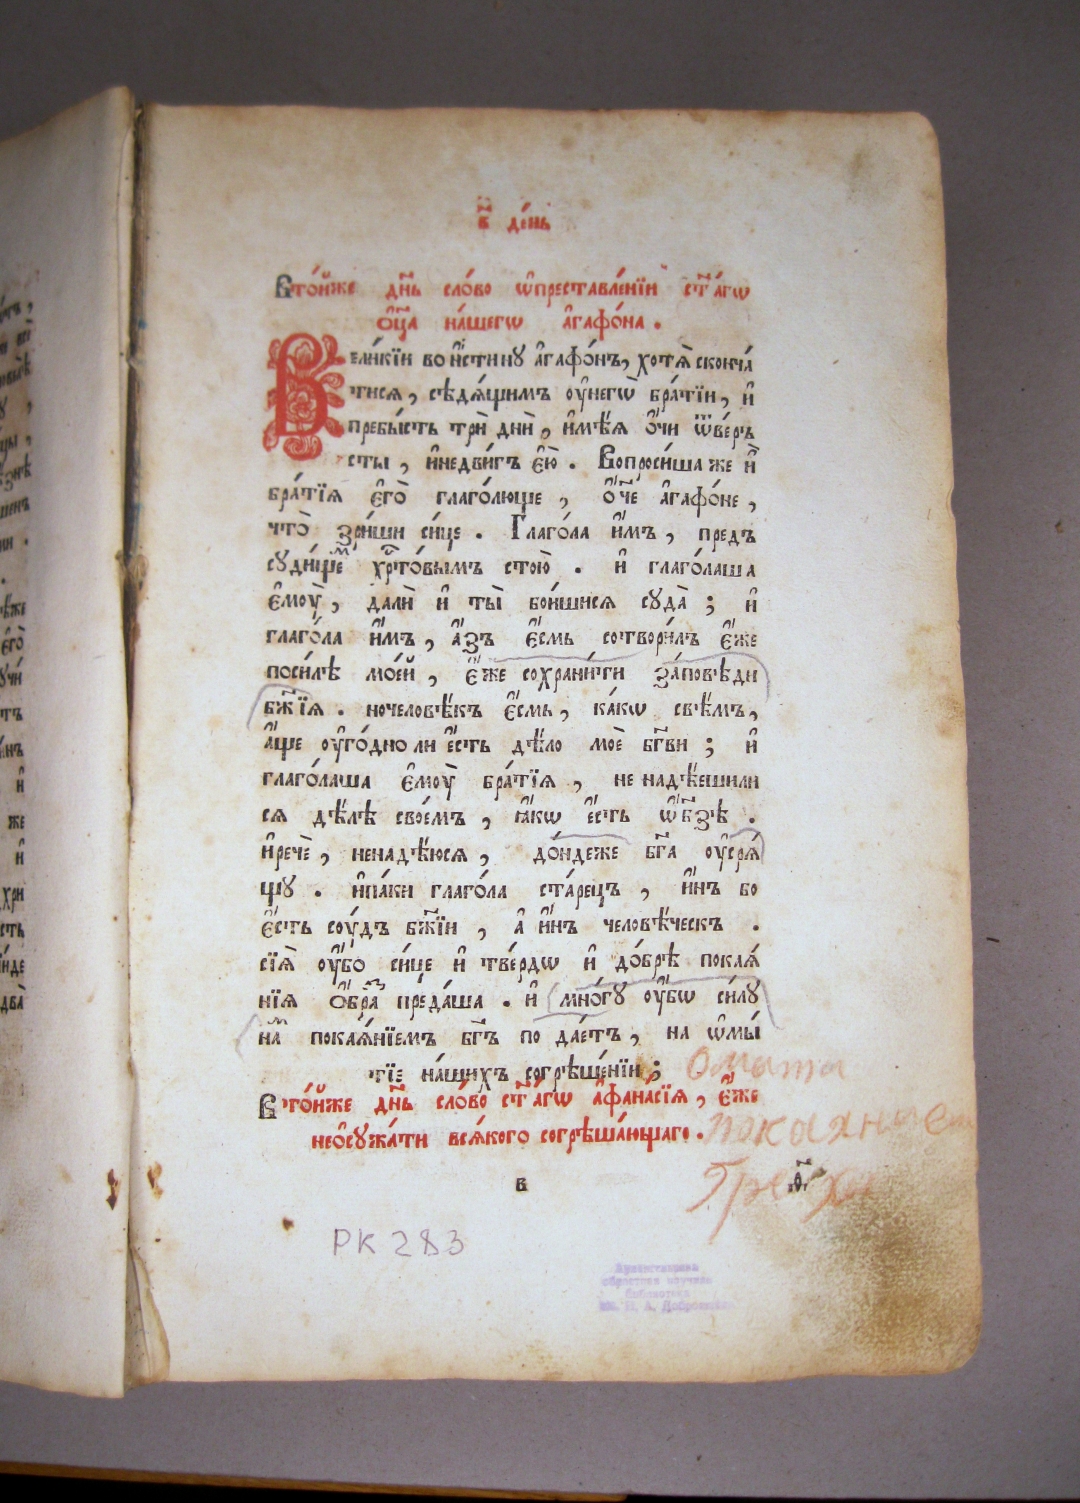 в҃ де́нь
Вто́йже дн҃ь сло́во ѡ҆преставле́нїи ст҃а́гѡ
ѻ҆ц҃а на́шегѡ а҆гаѳо́на.
Вели́кїи вои́стинну а҆гаѳо́нъ, хотѧ̀ сконча́
тисѧ, сѣдѧ́щимъ оу҆негѡ̀ бра́тїи, и҆
пребы́сть трѝ днѝ, и҆мѣ́ѧ ѻ҆́чи ѿве́ръ
сты, и҆недви́гъ є҆ю̀. Вопроси́ша же и҆̀
бра́тїѧ є҆го̀ глаго́люще, ѻ҆́ч҃е а҆гаѳо́не,
что̀ зри́ши си́це. Глаго́ла и҆̀мъ, предъ
суди́щеⷨ хрⷭ҇то́вымъ стою̀. и҆ глаго́лаша
є҆моу̀, далѝ и҆ ты̀ бои́шисѧ суда̀; и҆
глаго́ла и҆̀мъ, а҆́зъ є҆́смь сотвори́лъ є҆́же
поси́лѣ мое́й, є҆́же сохрани́ти за́повѣди
бж҃їѧ. ночеловѣ́къ є҆́смь, ка́кѡ свѣ́мъ,
а҆́ще оу҆го́дно ли є҆́сть дѣ́ло моѐ бг҃ви; и҆
глаго́лаша є҆моу̀ бра́тїѧ, не надѣ́ешили
сѧ дѣ́лѣ свое́мъ, ꙗ҆́кѡ є҆́сть ѡ҆бз҃ѣ.
и҆речѐ, ненадѣ́юсѧ, до́ндеже бг҃а оу҆срѧ́
щу. и҆па́ки глаго́ла ста́рецъ, и҆́нъ бо
є҆́сть соу́дъ бж҃їи, а҆ и҆́нъ человѣ́ческъ.
сїѧ̀ оу҆́бо си́це и҆ тве́рдѡ и҆ до́брѣ покаѧ́
нїѧ ѻ҆́браⷥ преда́ша. и҆ мно́гу оу҆́бѡ си́лу
наⷨ покаѧ́нїемъ бг҃ъ по дае́тъ, на ѡ҆мы́
тїе на́шихъ согрѣше́нїи;
омыти
покаянием
грехи
Вто́йже дн҃ь сло́во ст҃а́гѡ а҆ѳана́сїѧ, є҆́же
неѻ҆сужа́ти всѧ́кого согрѣша́ющаго.
в
РК 283
Архангельская
областная научная
библиотека
им. Н. А. Добролюбова